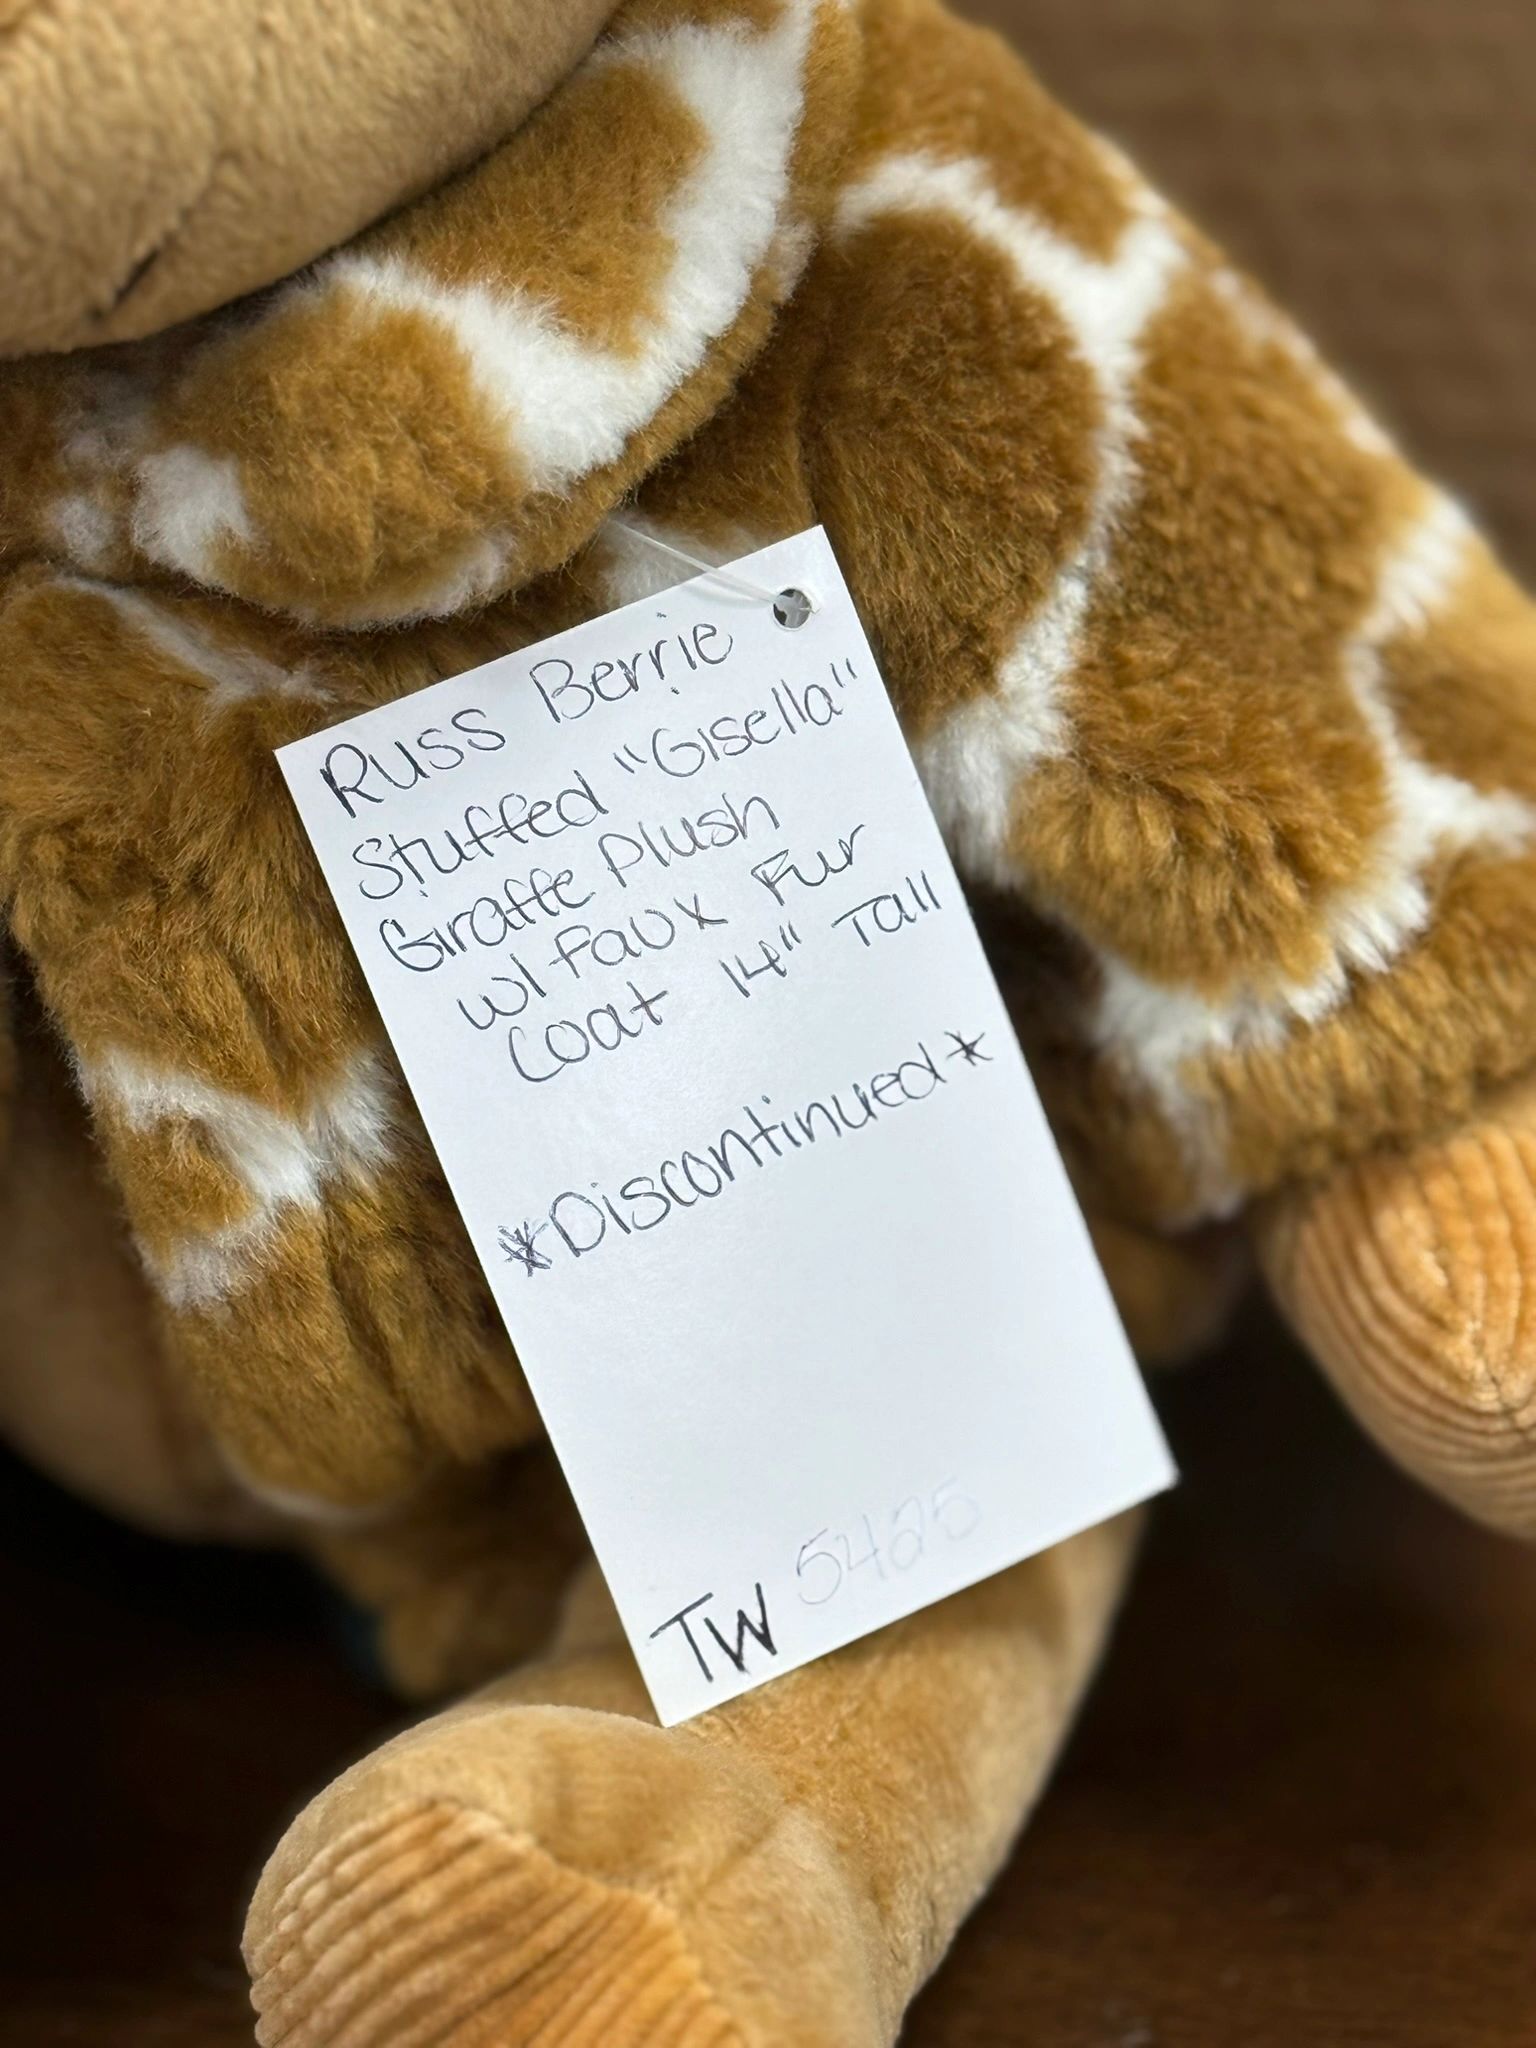 Russ Berrie
Stuffed "Gisella"
Giraffe Plush
w/ Faux Fur
Coat 14" Tall
*Discontinued*
TW 5425